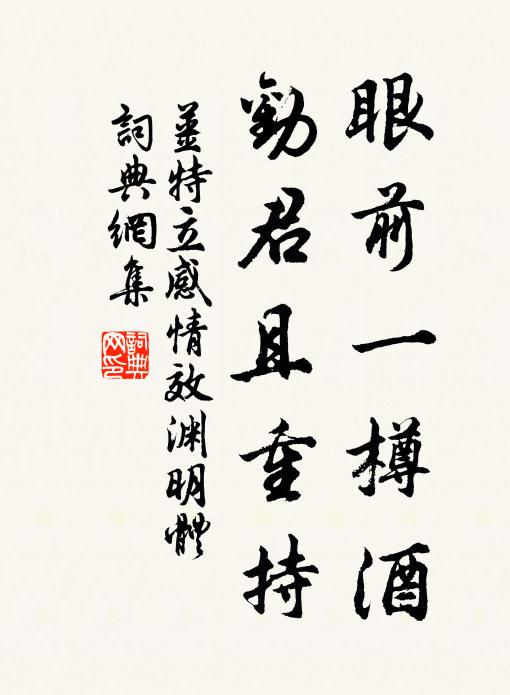 眼前一樽酒
勸君且重持
姜特立感情效淵明體
詞典網集
詞典網印